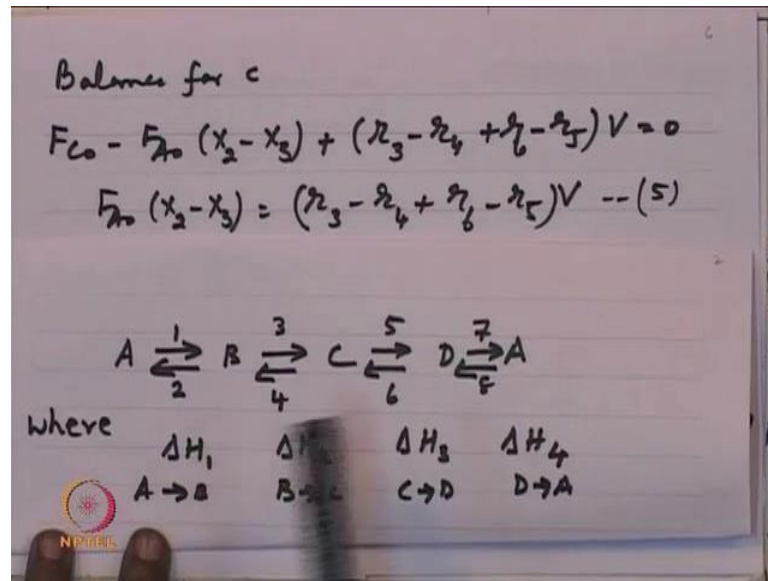 6
Balance for c
F_{C0} - F_{A0} (x_2 - x_3) + (r_3 - r_4 + r_6 - r_5) V = 0
F_{A0} (x_2 - x_3) = (r_3 - r_4 + r_6 - r_5) V -- (5)
1 3 5 7
A ⇌ B ⇌ C ⇌ D ⇌ A
2 4 6 8
where
ΔH_1 ΔH_3 ΔH_4
A → B C → D D → A
NPTEL